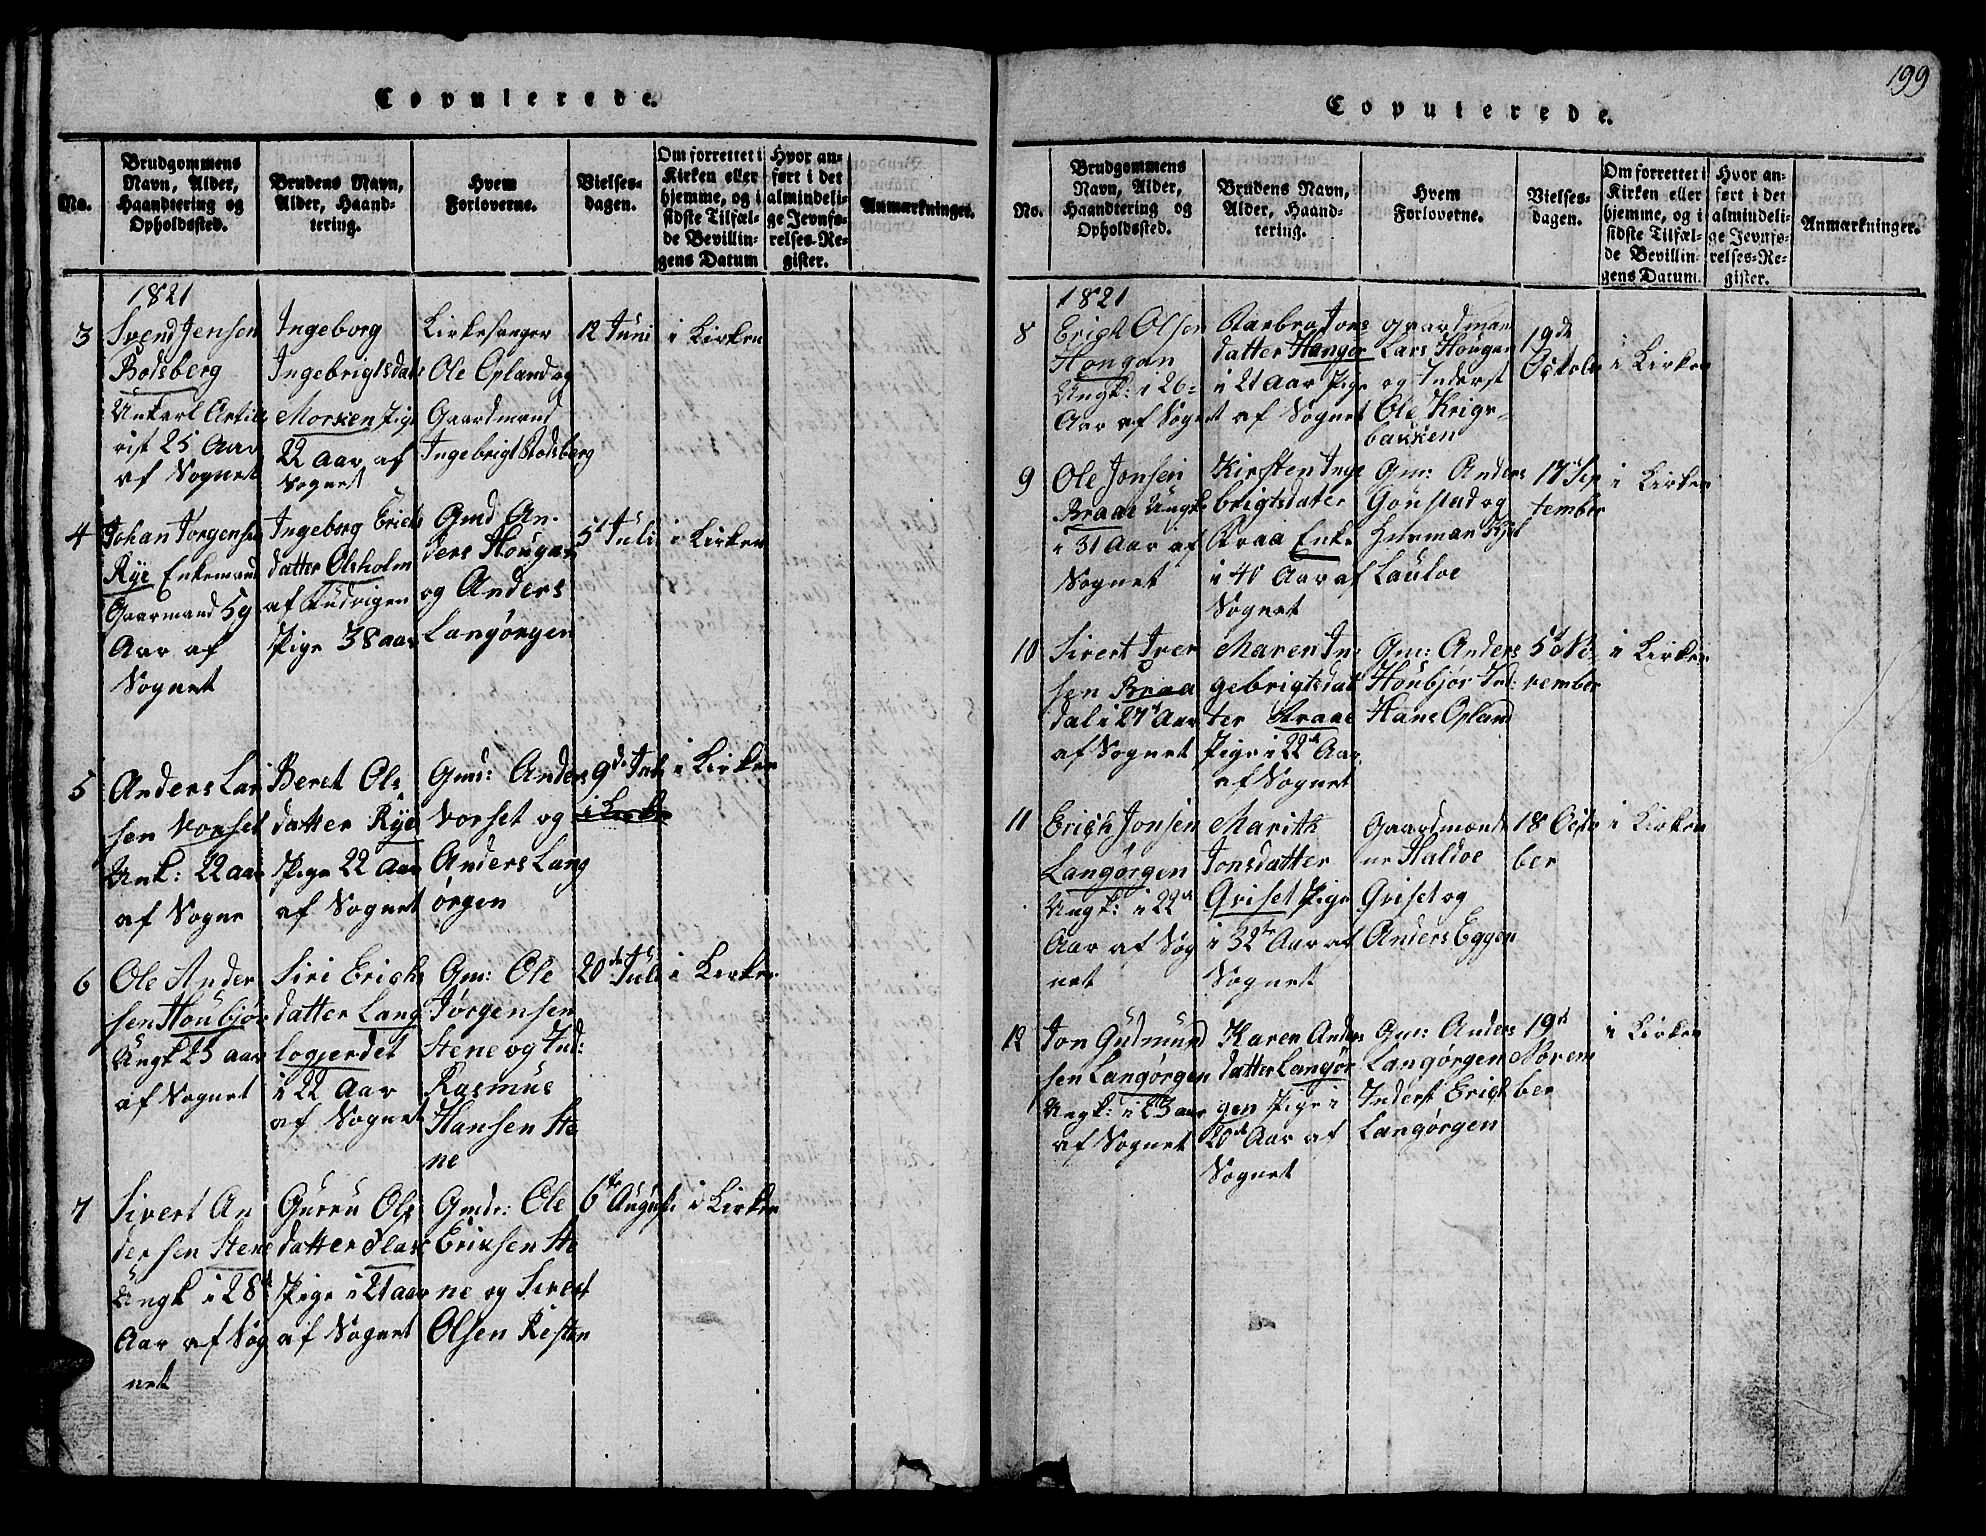 199
Copulerede.
No.
Brudgommens
Navn, Alder,
Haandtering og
Opholdssted.
Brudens Navn,
Alder, Haand-
tering.
Hvem
Forloverne.
Vielses-
dagen.
Om forrettet i
Kirken eller
hjemme, og i
sidste Tilfæl-
de Bevillin-
gens Datum
Hvor an-
ført i det
almindeli-
ge Jevnfø-
relses-Re-
gister.
Anmærkninger.
1821
3
Svend Jensen
Bodsberg
Unkarl Artille
rist 25 Aar
af Sognet
Ingeborg
Ingebrigtsdatt
Morken Pige
22 aar af
Sognet
Kirkesanger
Ole Opland og
Gaardmand
Ingebrigt Bodsberg
12 Juni
i Kirken
4
Johan Jørgensen
Rye Enkemand
Gaarmand 59
Aar af
Sognet
Ingeborg Erichs
datter Olsholm
af
Pige 38 aar
Gmd: An
ders Hougan
og Anders
Langørgen
5t Juli
i Kirken
5
Anders Lar
sen Vorset
Unk: 22 aar
af Sogne
Beret Ols
datter Rye
Pige 22 Aar
af Sognet
Gmd: Anders
Vorset og
Anders Lang
ørgen
9de Juli
i Kirke
i Kirken
6
Ole Ander
sen Houbjør
Ungk 25 aar
af Sognet
Siri Erichs
datter Lang
logjerdet
i 22 Aar
af Sognet
Gm: Ole
Jørgensen
Stene og Ind:
Rasmus
Hansen Ste
ne
20de Juli
i Kirken
7
Sivert An
dersen Stene
Ungk i 28de
Aar af Sog
net
Gurru Ols
datter
Pige i 21 aar
af Sognet
Gmdr: Ole
Eriksen Ste
ne og Sivert
Olsen Resten
6te August
i Kirken
Copulerede.
No.
Brudgommens
Navn, Alder,
Haandtering og
Opholdssted.
Brudens Navn,
Alder, Haand-
tering.
Hvem
Forloverne.
Vielses-
dagen.
Om forrettet i
Kirken eller
hjemme, og i
sidste Tilfæl-
de Bevillin-
gens Datum.
Hvor an-
ført i det
almindeli-
ge Jevnfø-
relses-Re-
gister.
Anmærkninger.
1821
8
Erich Olsen
Hongan
Ungk: i 26
Aar af Sognet
Barbra Jons
datter Hangor
i 21 Aar Pige
af Sognet
Gaardman
Lars Hougan
og Inderst
Ole Krigs-
bakken
19de
October
i Kirken
9
Ole Jonsen
Braae Ungk
i 31 Aar af
Sognet
Kirsten Inge
brigtsdater
Braa Enke
i 40 Aar af
Sognet
Gm: Anders
Gønstad og
Huusman
Lauloe
17 Sep
tember
i Kirken
10
Sivert Iver
sen Braa
dal i 27de Aar
af Sognet
Maren In
gebrigtsdat
ter Braae
Pige i 22de Aar
af Sognet
Gm: Anders
Houbjør Ind:
Hans Opland
5t No
vember
i Kirken
11
Erich Jonsen
Langørgen
Ungk: i 22de
Aar af Sog
net
Marith
Jonsdatter
Griset Pige
i 32te Aar af
Sognet
Gaardmænde
ne Haldoe
Griset og
Anders Eggen
18 Octo
ber
i Kirken
12
Jon Gudmund
sen Langørgen
Ungk: i 23 aar
af Sognet
Karen Anders
datter Langør
gen Pige i
20de Aar af
Sognet
Gm: Anders
Langørgen
Inderst Erich
Langørgen
19de
Novem
ber
i Kirken